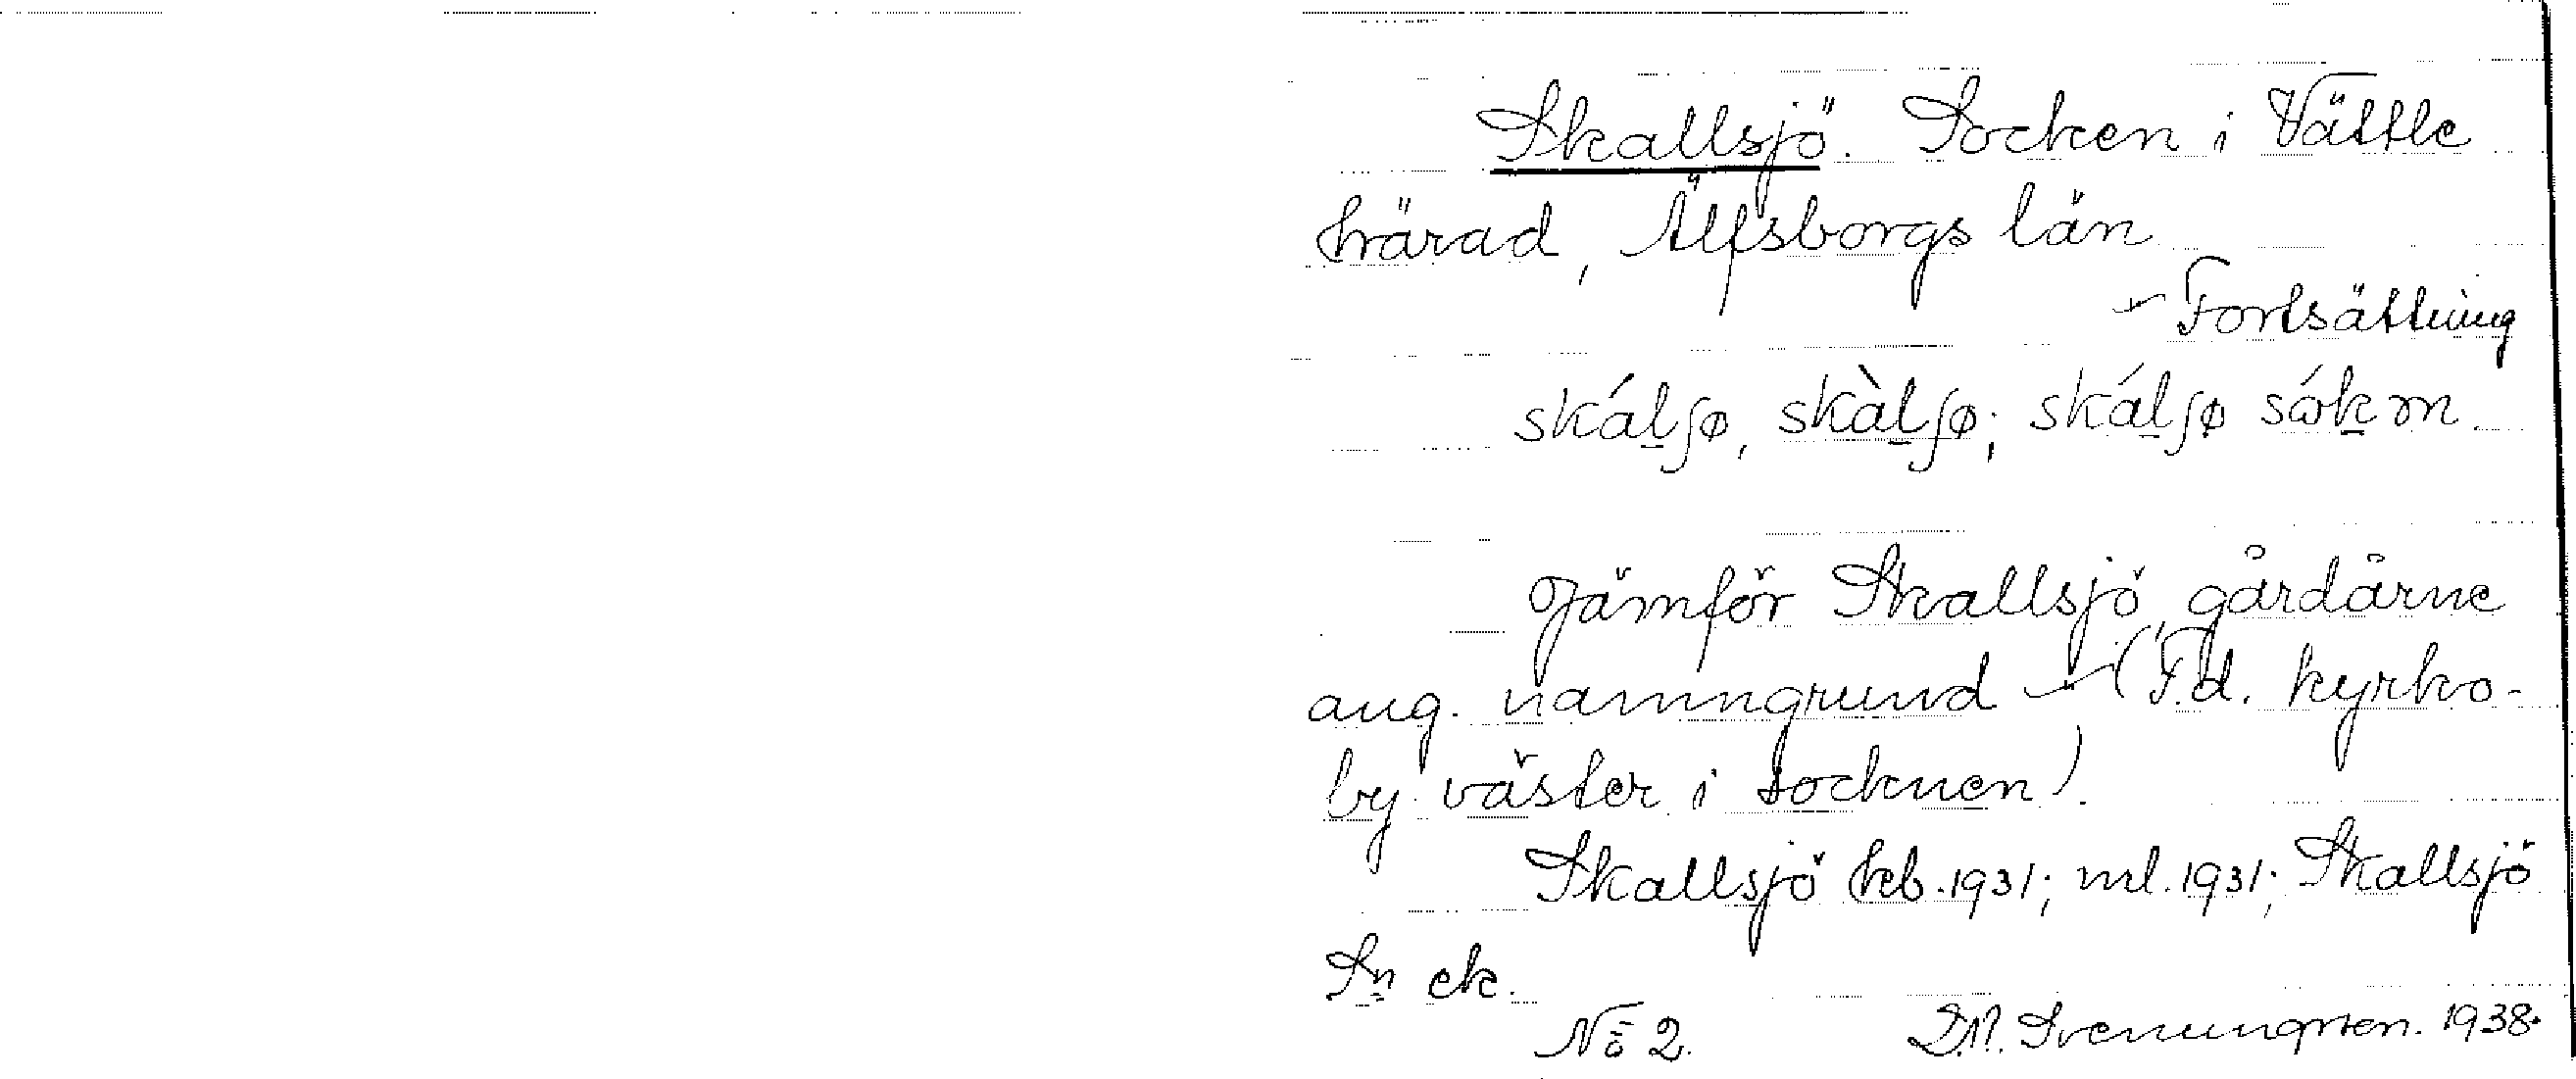 Skallsjö. Socken i Vättle
härad, Älfsborgs län
Fortsättning
skálʃø, skàlʃø; skálʃø sókm
Jämför Skallsjö, gårdårne
ang. namngrund (F.d. kyrko-
by väster i socknen).
Skallsjö kb. 1931; ml. 1931; Skallsjö
Sn ek.
No 2. Svenungsson. 1938.